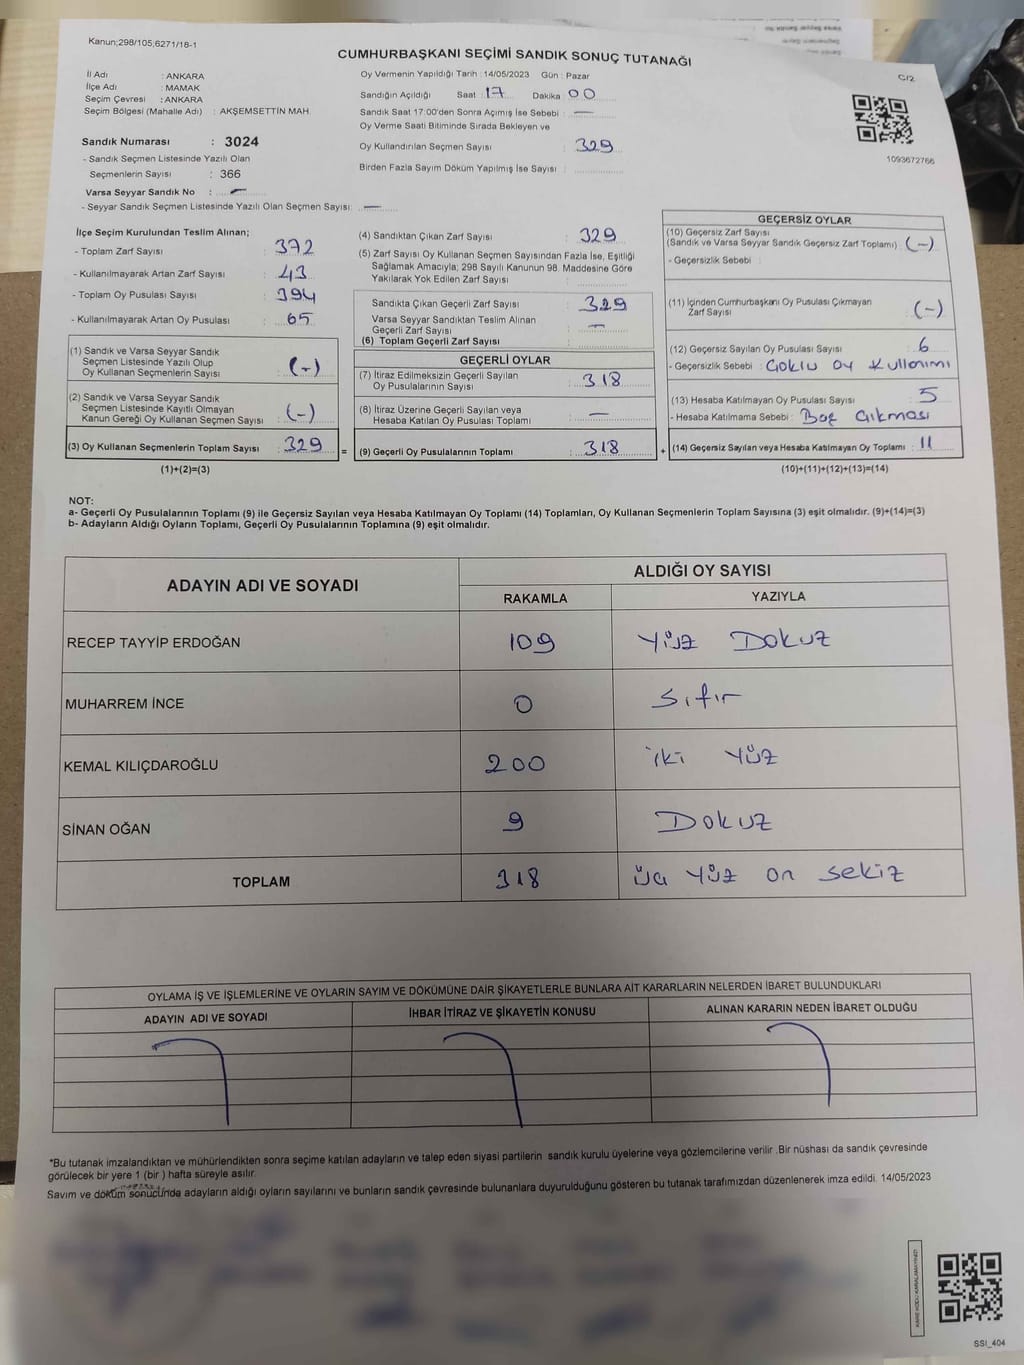 Kanun;298/105,6271/18-1
CUMHURBAŞKANI SEÇİMİ SANDIK SONUÇ TUTANAĞI
C/2
İl Adı : ANKARA
İlçe Adı : MAMAK
Seçim Çevresi : ANKARA
Seçim Bölgesi (Mahalle Adı) : AKŞEMSETTİN MAH.
Oy Vermenin Yapıldığı Tarih : 14/05/2023 Gün : Pazar
Sandığın Açıldığı Saat : 17 Dakika : 00
Sandık Saat 17:00'den Sonra Açımış İse Sebebi : —
Oy Verme Saati Bitiminde Sırada Bekleyen ve
Oy Kullandırılan Seçmen Sayısı : 329
Birden Fazla Sayım Döküm Yapılmış İse Sayısı :
1093672766
Sandık Numarası : 3024
- Sandık Seçmen Listesinde Yazılı Olan
Seçmenlerin Sayısı : 366
Varsa Seyyar Sandık No : —
- Seyyar Sandık Seçmen Listesinde Yazılı Olan Seçmen Sayısı : —
İlçe Seçim Kurulundan Teslim Alınan;
- Toplam Zarf Sayısı : 372
- Kullanılmayarak Artan Zarf Sayısı : 43
- Toplam Oy Pusulası Sayısı : 394
- Kullanılmayarak Artan Oy Pusulası : 65
(1) Sandık ve Varsa Seyyar Sandık
Seçmen Listesinde Yazılı Olup
Oy Kullanan Seçmenlerin Sayısı : (-)
(2) Sandık ve Varsa Seyyar Sandık
Seçmen Listesinde Kayıtlı Olmayan
Kanun Gereği Oy Kullanan Seçmen Sayısı : (-)
(3) Oy Kullanan Seçmenlerin Toplam Sayısı : 329 =
(1)+(2)=(3)
(4) Sandıktan Çıkan Zarf Sayısı : 329
(5) Zarf Sayısı Oy Kullanan Seçmen Sayısından Fazla İse, Eşitliği
Sağlamak Amacıyla; 298 Sayılı Kanunun 98. Maddesine Göre
Yakılarak Yok Edilen Zarf Sayısı :
Sandıkta Çıkan Geçerli Zarf Sayısı : 329
Varsa Seyyar Sandıktan Teslim Alınan
Geçerli Zarf Sayısı : —
(6) Toplam Geçerli Zarf Sayısı :
GEÇERLİ OYLAR
(7) İtiraz Edilmeksizin Geçerli Sayılan
Oy Pusulalarının Sayısı : 318
(8) İtiraz Üzerine Geçerli Sayılan veya
Hesaba Katılan Oy Pusulası Toplamı : —
(9) Geçerli Oy Pusulalarının Toplamı : 318 +
GEÇERSİZ OYLAR
(10) Geçersiz Zarf Sayısı
(Sandık ve Varsa Seyyar Sandık Geçersiz Zarf Toplamı) : (-)
- Geçersizlik Sebebi :
(11) İçinden Cumhurbaşkanı Oy Pusulası Çıkmayan
Zarf Sayısı : (-)
(12) Geçersiz Sayılan Oy Pusulası Sayısı : 6
- Geçersizlik Sebebi : Çoklu oy kullanımı
(13) Hesaba Katılmayan Oy Pusulası Sayısı : 5
- Hesaba Katılmama Sebebi : Boş çıkması
(14) Geçersiz Sayılan veya Hesaba Katılmayan Oy Toplamı : 11
(10)+(11)+(12)+(13)=(14)
NOT:
a- Geçerli Oy Pusulalarının Toplamı (9) ile Geçersiz Sayılan veya Hesaba Katılmayan Oy Toplamı (14) Toplamları, Oy Kullanan Seçmenlerin Toplam Sayısına (3) eşit olmalıdır. (9)+(14)=(3)
b- Adayların Aldığı Oyların Toplamı, Geçerli Oy Pusulalarının Toplamına (9) eşit olmalıdır.
ADAYIN ADI VE SOYADI
ALDIĞI OY SAYISI
RAKAMLA YAZIYLA
RECEP TAYYİP ERDOĞAN 109 Yüz Dokuz
MUHARREM İNCE 0 Sıfır
KEMAL KILIÇDAROĞLU 200 iki yüz
SİNAN OĞAN 9 Dokuz
TOPLAM 318 üç yüz on sekiz
OYLAMA İŞ VE İŞLEMLERİNE VE OYLARIN SAYIM VE DÖKÜMÜNE DAİR ŞİKAYETLERLE BUNLARA AİT KARARLARIN NELERDEN İBARET BULUNDUKLARI
ADAYIN ADI VE SOYADI İHBAR İTİRAZ VE ŞİKAYETİN KONUSU ALINAN KARARIN NEDEN İBARET OLDUĞU
*Bu tutanak imzalandıktan ve mühürlendikten sonra seçime katılan adayların ve talep eden siyasi partilerin sandık kurulu üyelerine veya gözlemcilerine verilir .Bir nüshası da sandık çevresinde
görülecek bir yere 1 (bir ) hafta süreyle asılır.
Sayım ve döküm sonucunda adayların aldığı oyların sayılarını ve bunların sandık çevresinde bulunanlara duyurulduğunu gösteren bu tutanak tarafımızdan düzenlenerek imza edildi. 14/05/2023
KARE KODU KARALAMAYINIZ!
SSI_404